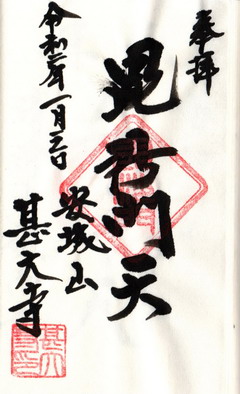 奉拝
毘沙門天
安城山
甚大寺
令和二年一月三日